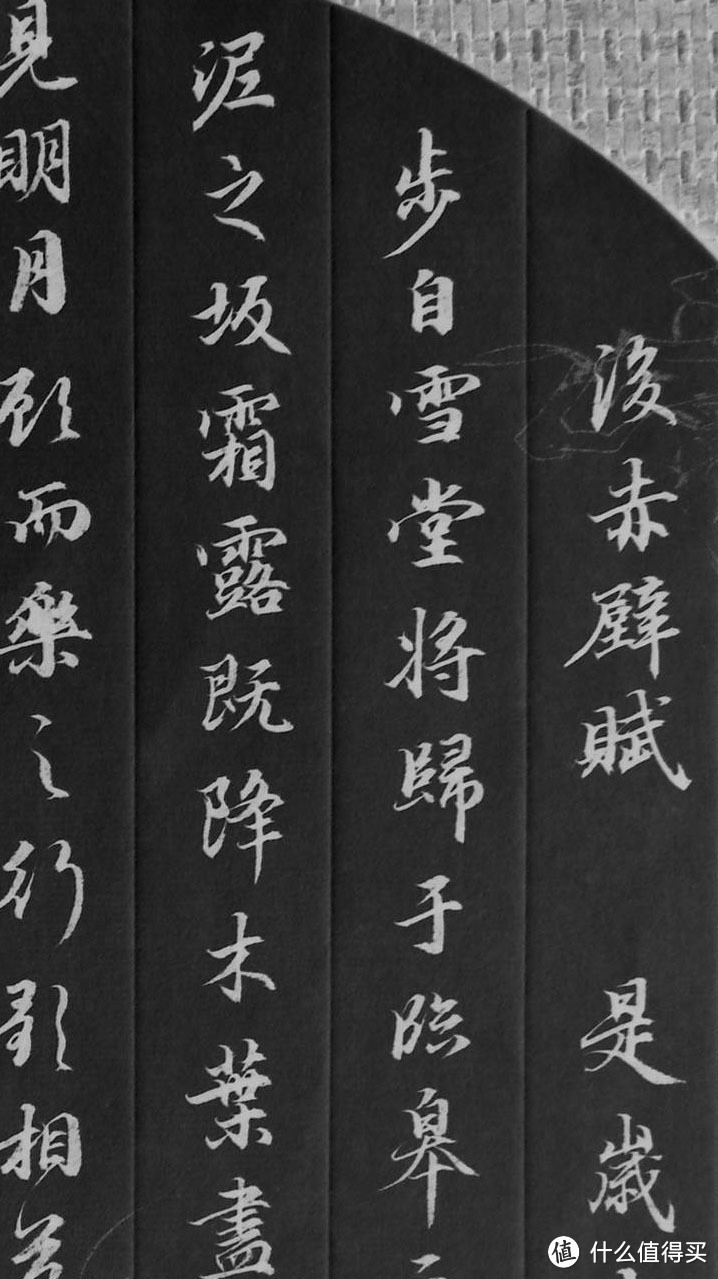 後赤壁賦 是歲
步自雪堂將歸于臨皋
泥之坂霜露既降木葉盡
見明月顧而樂之行歌相
值 什么值得买